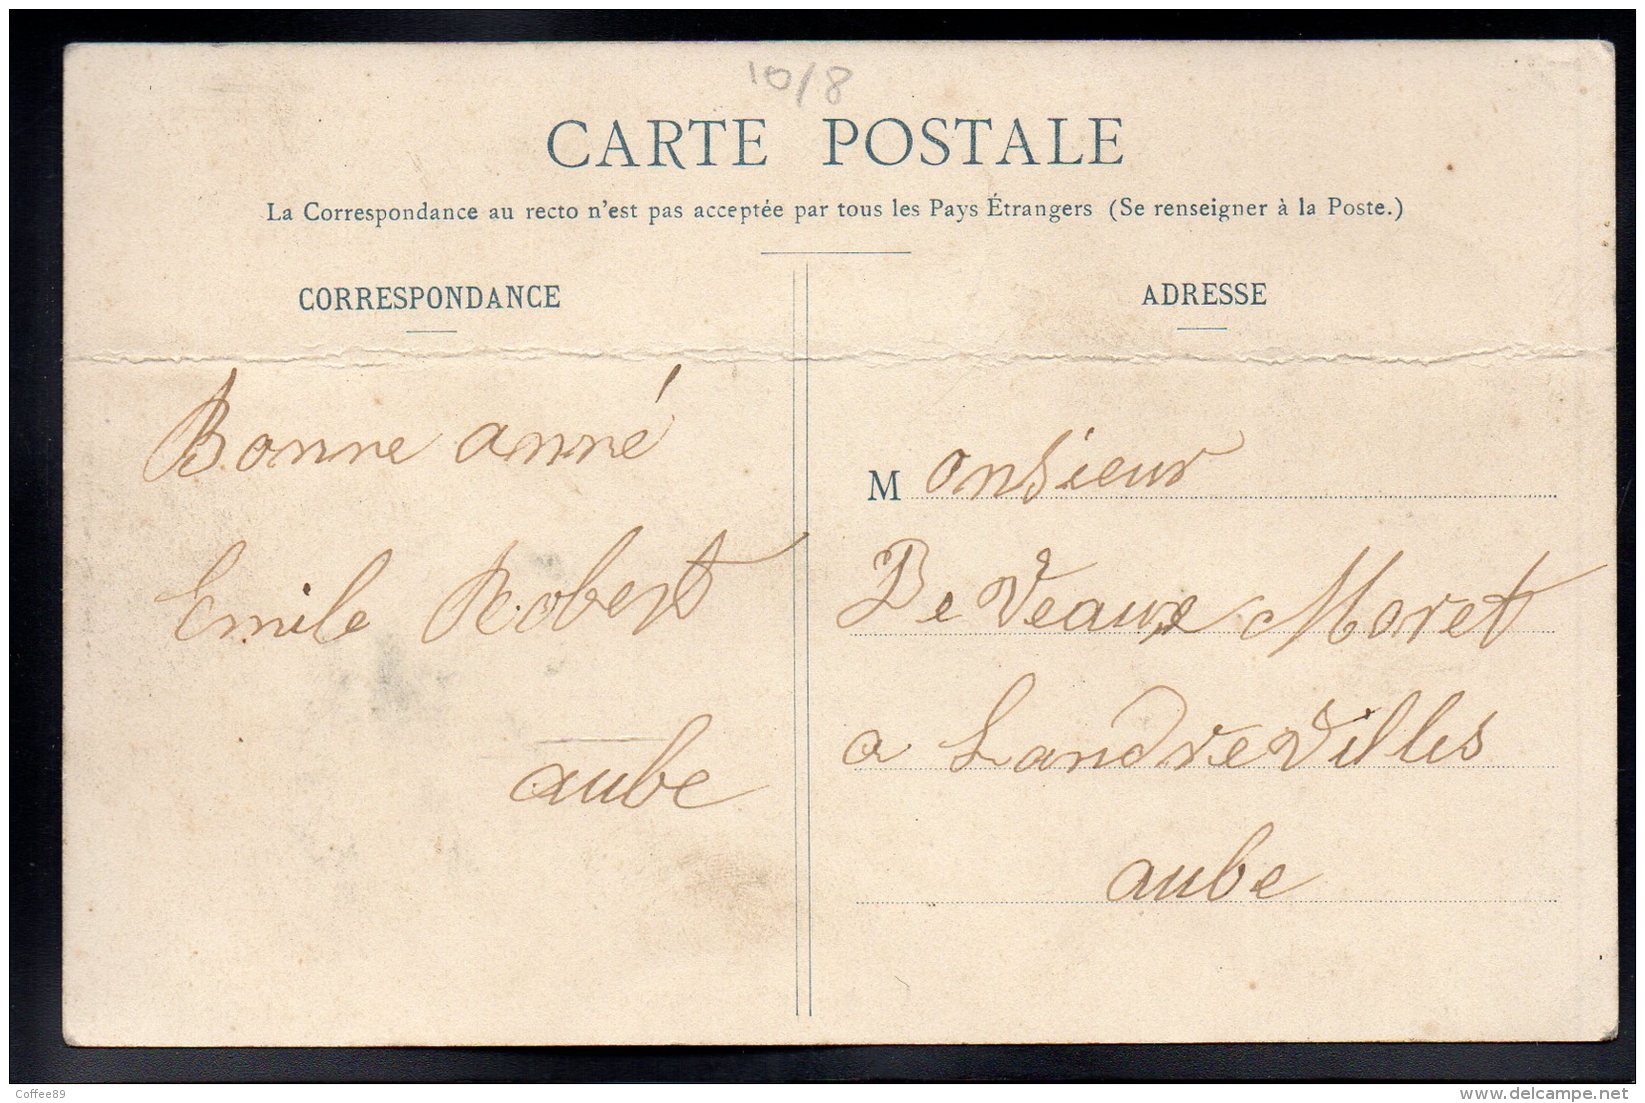 10/8
CARTE POSTALE
La Correspondance au recto n'est pas acceptée par tous les Pays Étrangers (Se renseigner à la Poste.)
CORRESPONDANCE
Bonne anné
Emile Robert
aube
ADRESSE
Monsieur
De Veaux Moret
a Landrevilles
aube
Coffee89
www.delcampe.net